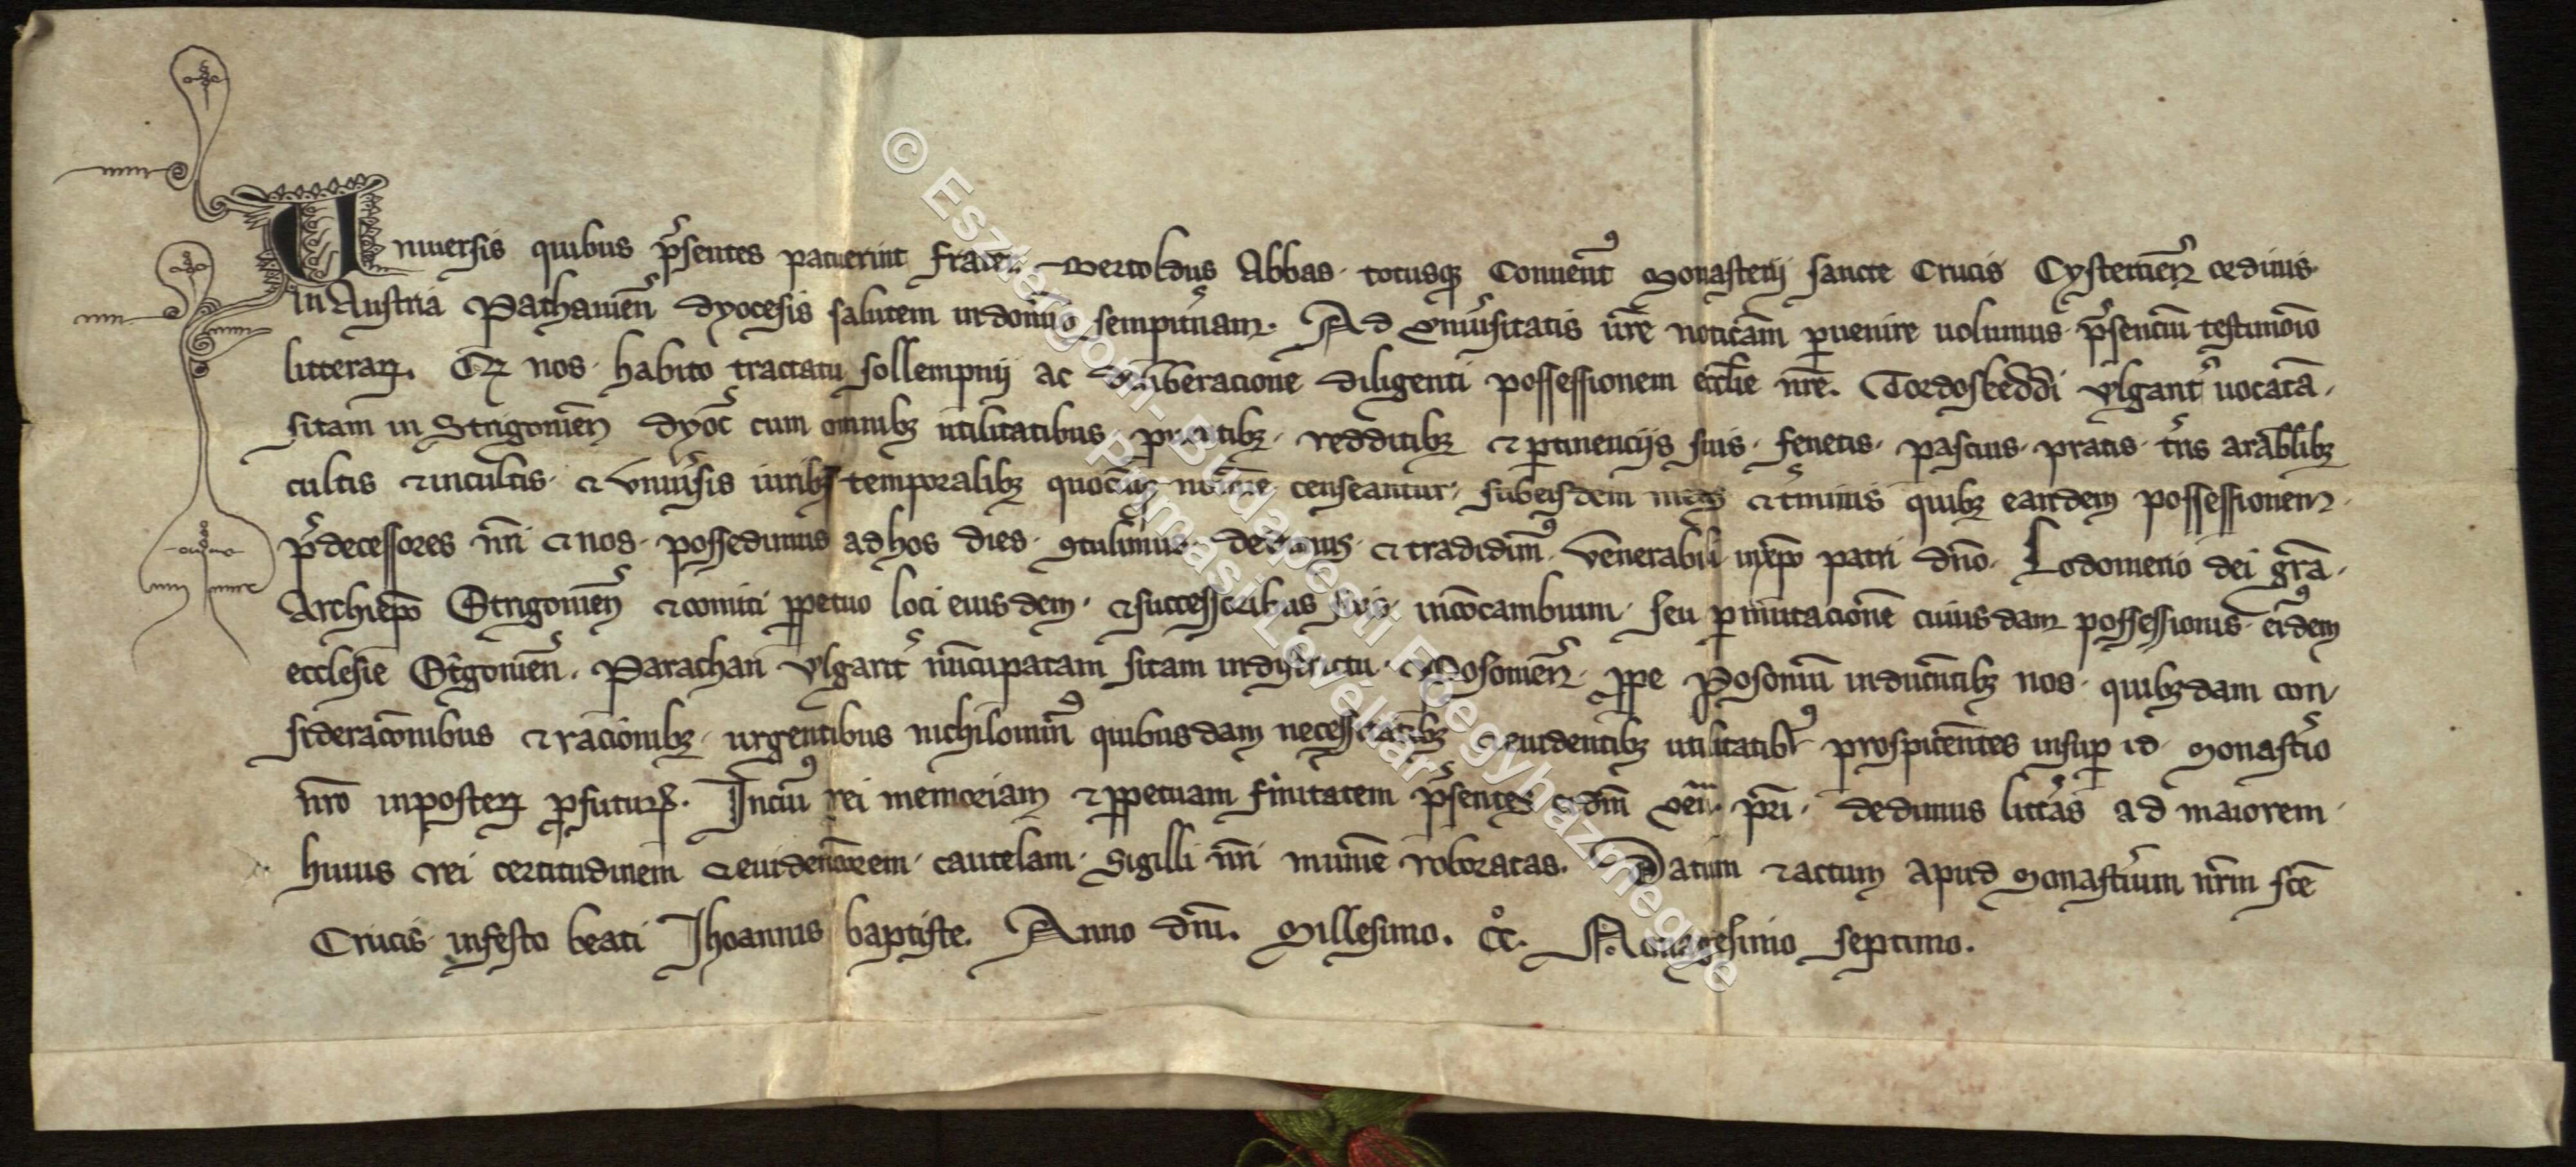 Vniuersis quibus p̄sentes patuerint frater Bertoldus Abbas totusq; Conuent⁹ Monasterij sancte Crucis Cystercien̄ ordinis
in Austria Pathauien̄ dyocesis salutem in domino sempit̄nam. Ad vniu̓sitatis vr̄e noticiam ꝑuenire uolumus p̄senciū testimonio
litteraꝝ. nos habito tractatu sollempnij ac deliberacione diligenti possessionem eccl̄ie nr̄e. Tordoskeddi vlgarit̓ uocatā
sitam in Strigonien̄ dyoc̄ cum omnibꝫ utilitatibus redditibꝫ ⁊ ꝑtinencijs suis fenetis pascuis pratis t̓ris arabilibꝫ
cultis ⁊ incultis ⁊ vniu̓sis iuribꝫ temporalibꝫ quocūqꝫ nomine censeantur sub eisdem metis ⁊ t̓minis quibꝫ eandem possessionem
p̄decessores nr̄i ⁊ nos possedimus ad hos dies ꝯtulimus dedimus ⁊ tradidim⁹ venerabili in xp̄o patri dn̄o Lodomerio dei gr̄a
Archiep̄o Strigonien̄ ⁊ comiti ꝑpetuo loci eiusdem ⁊ successoribus suis in concambium seu ꝑmutacionē cuiusdam possessionis eiusdem
ecclesie St̓gonien̄. Parachan vlgarit̓ nūcupatam sitam in dystrictu Posonien̄ ꝓpe Posoniū inducentibꝫ nos quibꝫdam con
sideracōnibus ⁊ racionibꝫ urgentibus nichilomin⁹ quibusdam necessitatibꝫ ⁊ euidentibꝫ utilitatibꝫ prospicientes insuꝑ id monast̓io
nr̄o in posteꝝ ꝓfutur̄. In cui⁹ rei memoriam ⁊ ꝑpetuam firmitatem p̄sentes eidem ven̄. pr̄i. dedimus litt̓as ad maiorem
huius rei certitudinem ⁊ euidenciorem cautelam Sigilli nr̄i munimine roboratas. Datum ⁊ actum apud Monast̓ium nr̄m sc̄e
Crucis in festo beati Jhoannis baptiste. Anno dn̄i. Millesimo. CC°. Nonagesimo septimo.
© Esztergom-Budapesti Főegyházmegye
Prímási Levéltár